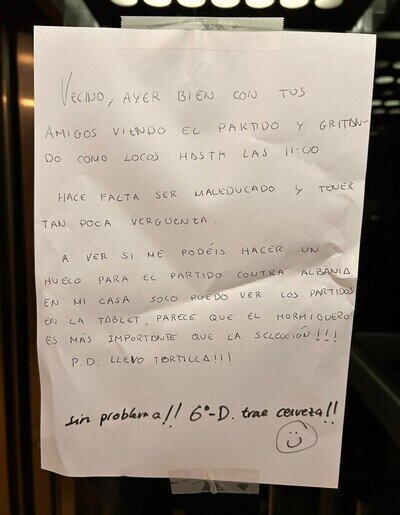 VECINO, AYER BIEN CON TUS
AMIGOS VIENDO EL PARTIDO Y GRITAN-
DO COMO LOCOS HASTA LAS 11:00.
HACE FALTA SER MALEDUCADO Y TENER
TAN POCA VERGÜENZA...
A VER SI ME PODÉIS HACER UN
HUECO PARA EL PARTIDO CONTRA ALBANIA
EN MI CASA SOLO PUEDO VER LOS PARTIDOS
EN LA TABLET, PARECE QUE EL HORMIGUERO
ES MÁS IMPORTANTE QUE LA SELECCIÓN!!!
P.D. LLEVO TORTILLA!!!
sin problema!! 6º-D. trae cerveza!!